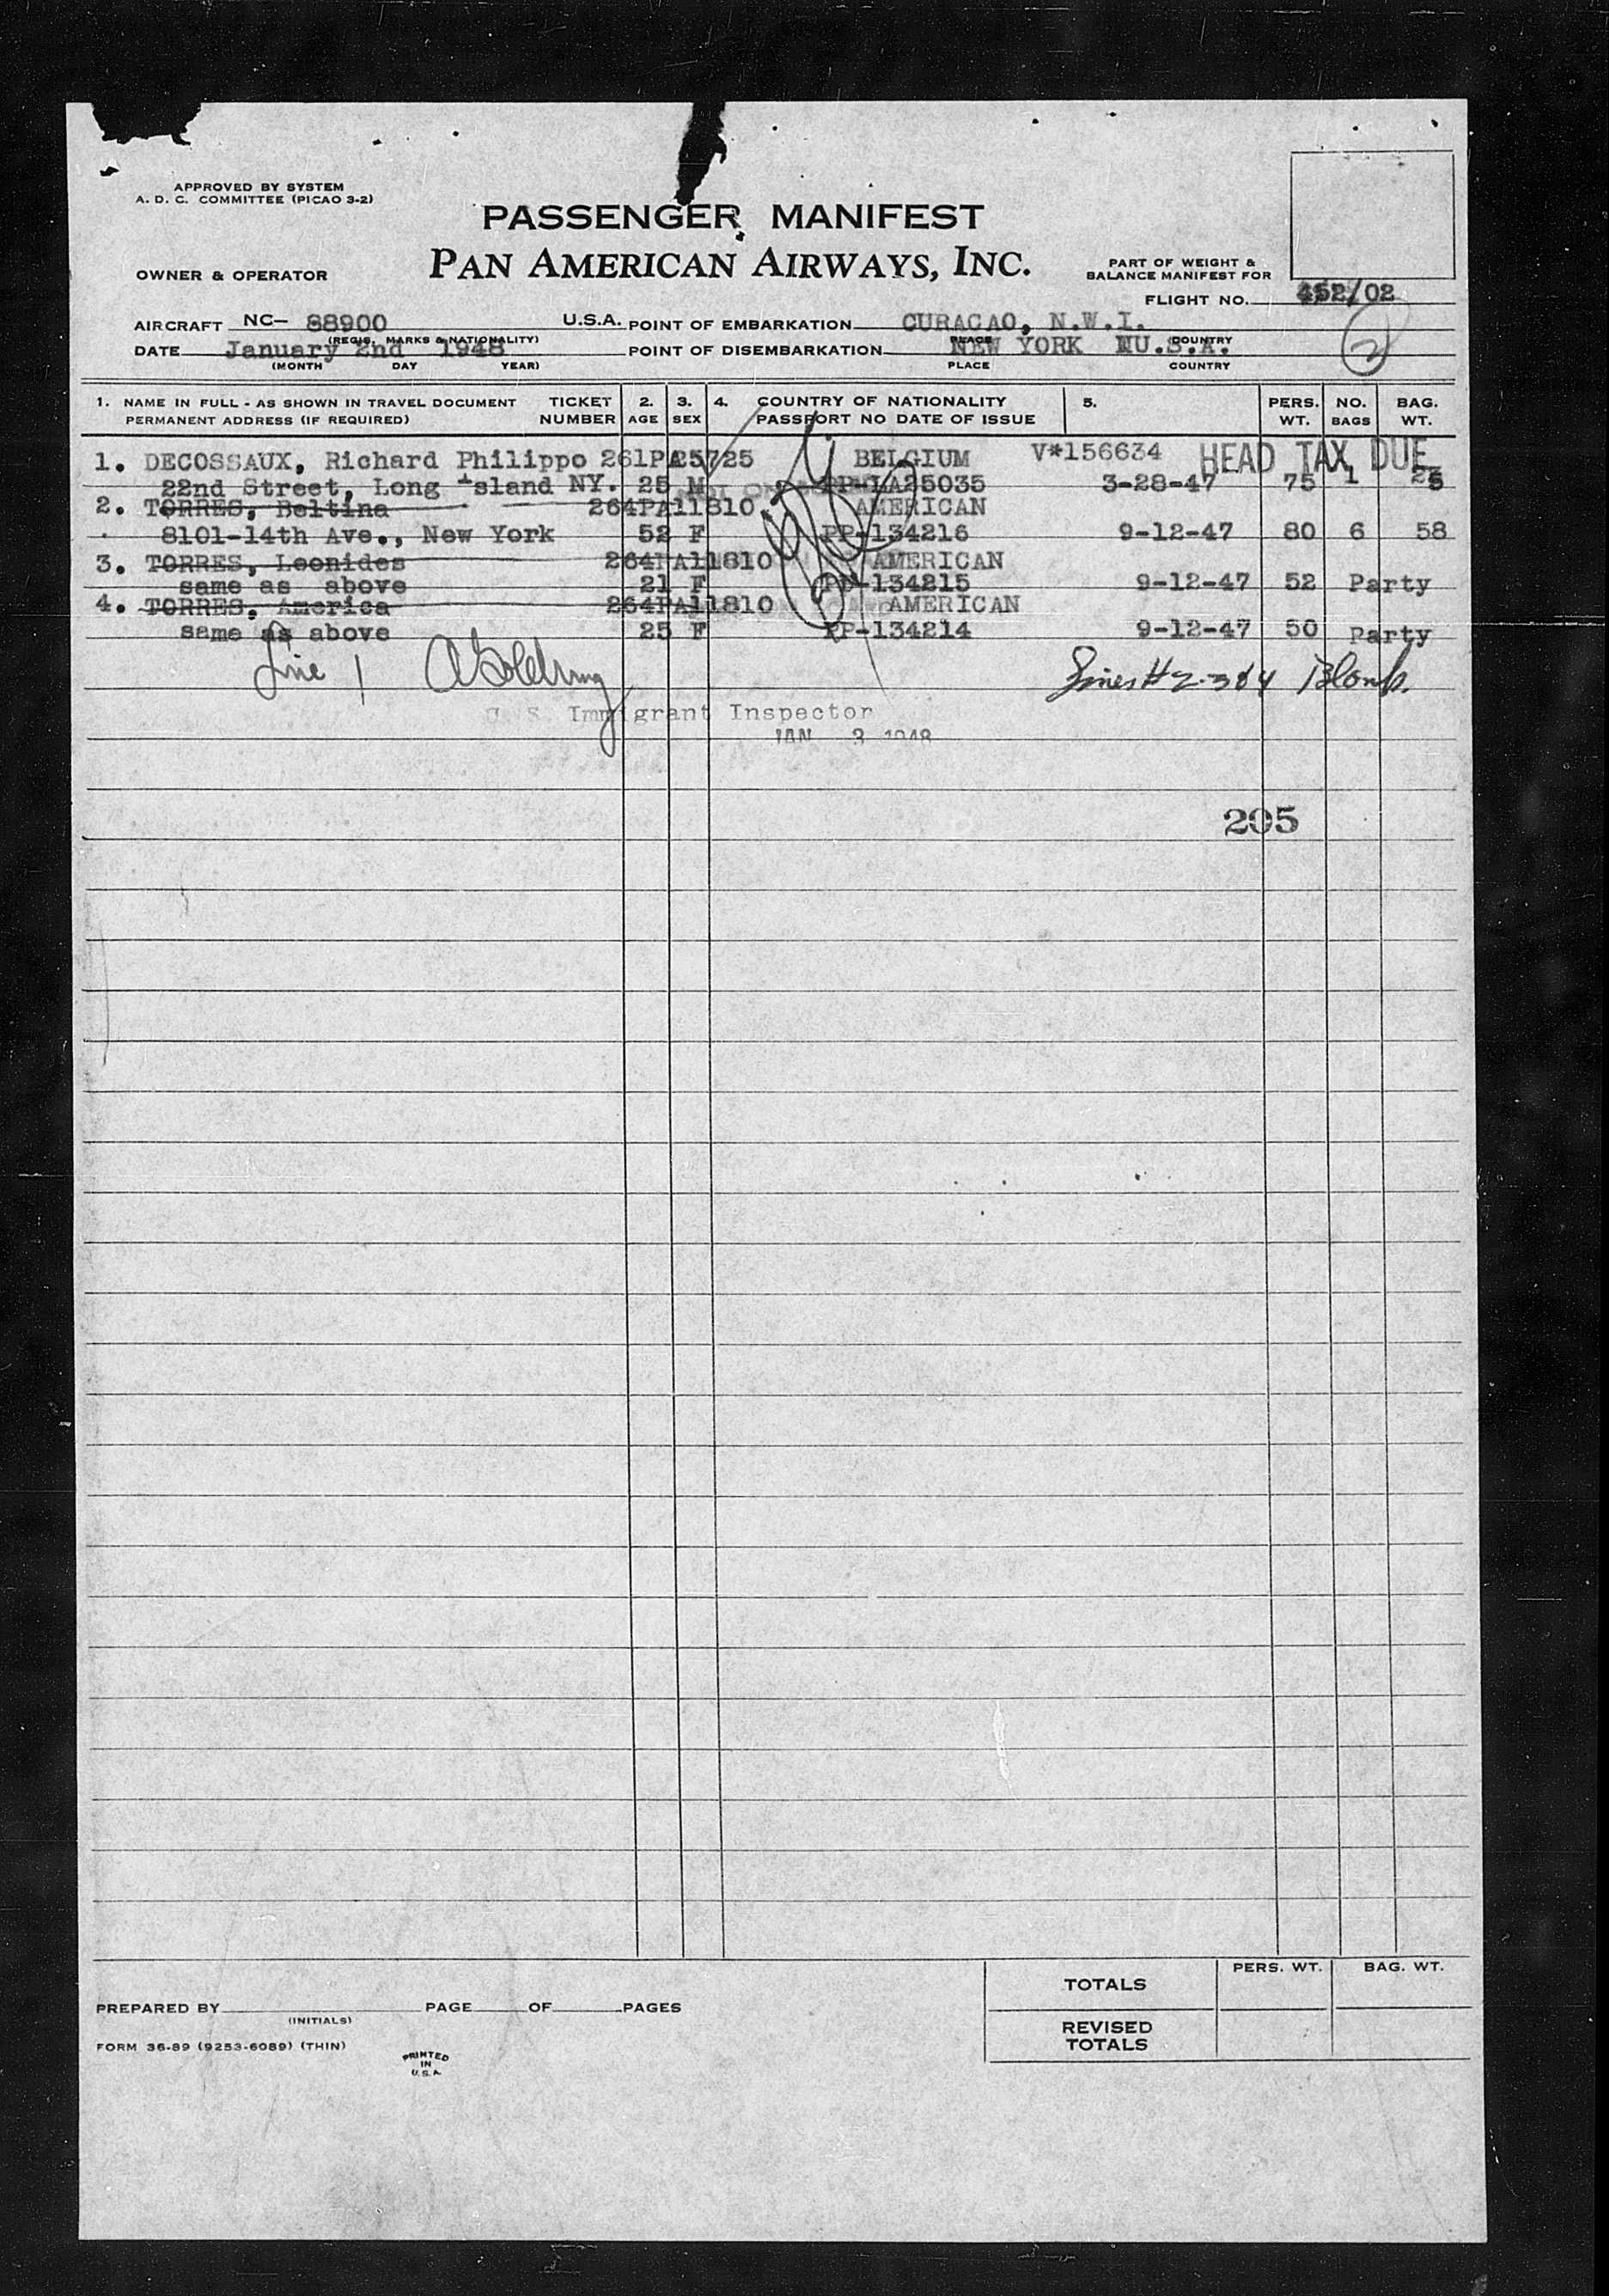 APPROVED BY SYSTEM
A. D. C. COMMITTEE (PICAO 3-2)
PASSENGER MANIFEST
PAN AMERICAN AIRWAYS, INC.
OWNER & OPERATOR
PART OF WEIGHT &
BALANCE MANIFEST FOR
FLIGHT NO. 452/02
AIRCRAFT NC- 88900 U.S.A. POINT OF EMBARKATION CURACAO, N.W.I.
(REGIS. MARKS & NATIONALITY) PLACE COUNTRY
DATE January 2nd 1948 POINT OF DISEMBARKATION NEW YORK U.S.A. 2
(MONTH DAY YEAR) PLACE COUNTRY
1. NAME IN FULL - AS SHOWN IN TRAVEL DOCUMENT TICKET 2. 3. 4. COUNTRY OF NATIONALITY 5. PERS. NO. BAG.
PERMANENT ADDRESS (IF REQUIRED) NUMBER AGE SEX PASSPORT NO DATE OF ISSUE WT. BAGS WT.
1. DECOSSAUX, Richard Philippo 261PA25725 BELGIUM V*156634 HEAD TAX DUE
22nd Street, Long Island NY. 25 M PP-LA25035 3-28-47 75 1
2. TORRES, Beltina 264PA11810 AMERICAN
8101-14th Ave., New York 52 F PP-134216 9-12-47 80 6 58
3. TORRES, Leonides 264PA11810 AMERICAN
same as above 21 F PP-134215 9-12-47 52 Party
4. TORRES, America 264PA11810 AMERICAN
same as above 25 F PP-134214 9-12-47 50 Party
Line 1 Lines # 2-3 & 4
U. S. Immigrant Inspector
JAN 3 1948
205
PERS. WT. BAG. WT.
TOTALS
PREPARED BY PAGE OF PAGES
(INITIALS)
REVISED
TOTALS
FORM 36-89 (9253-6089) (THIN)
PRINTED
IN
U.S.A.